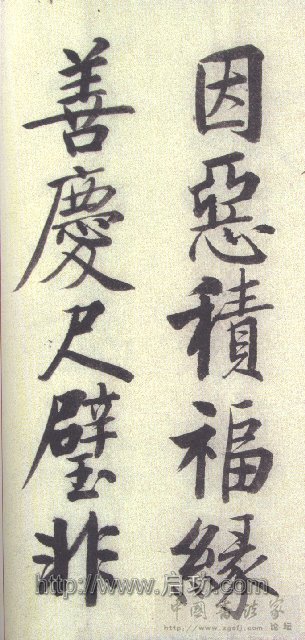 因惡積福緣
善慶尺璧非
http://www.启功.com
中國书法家
论坛
http://www.zgsfj.com